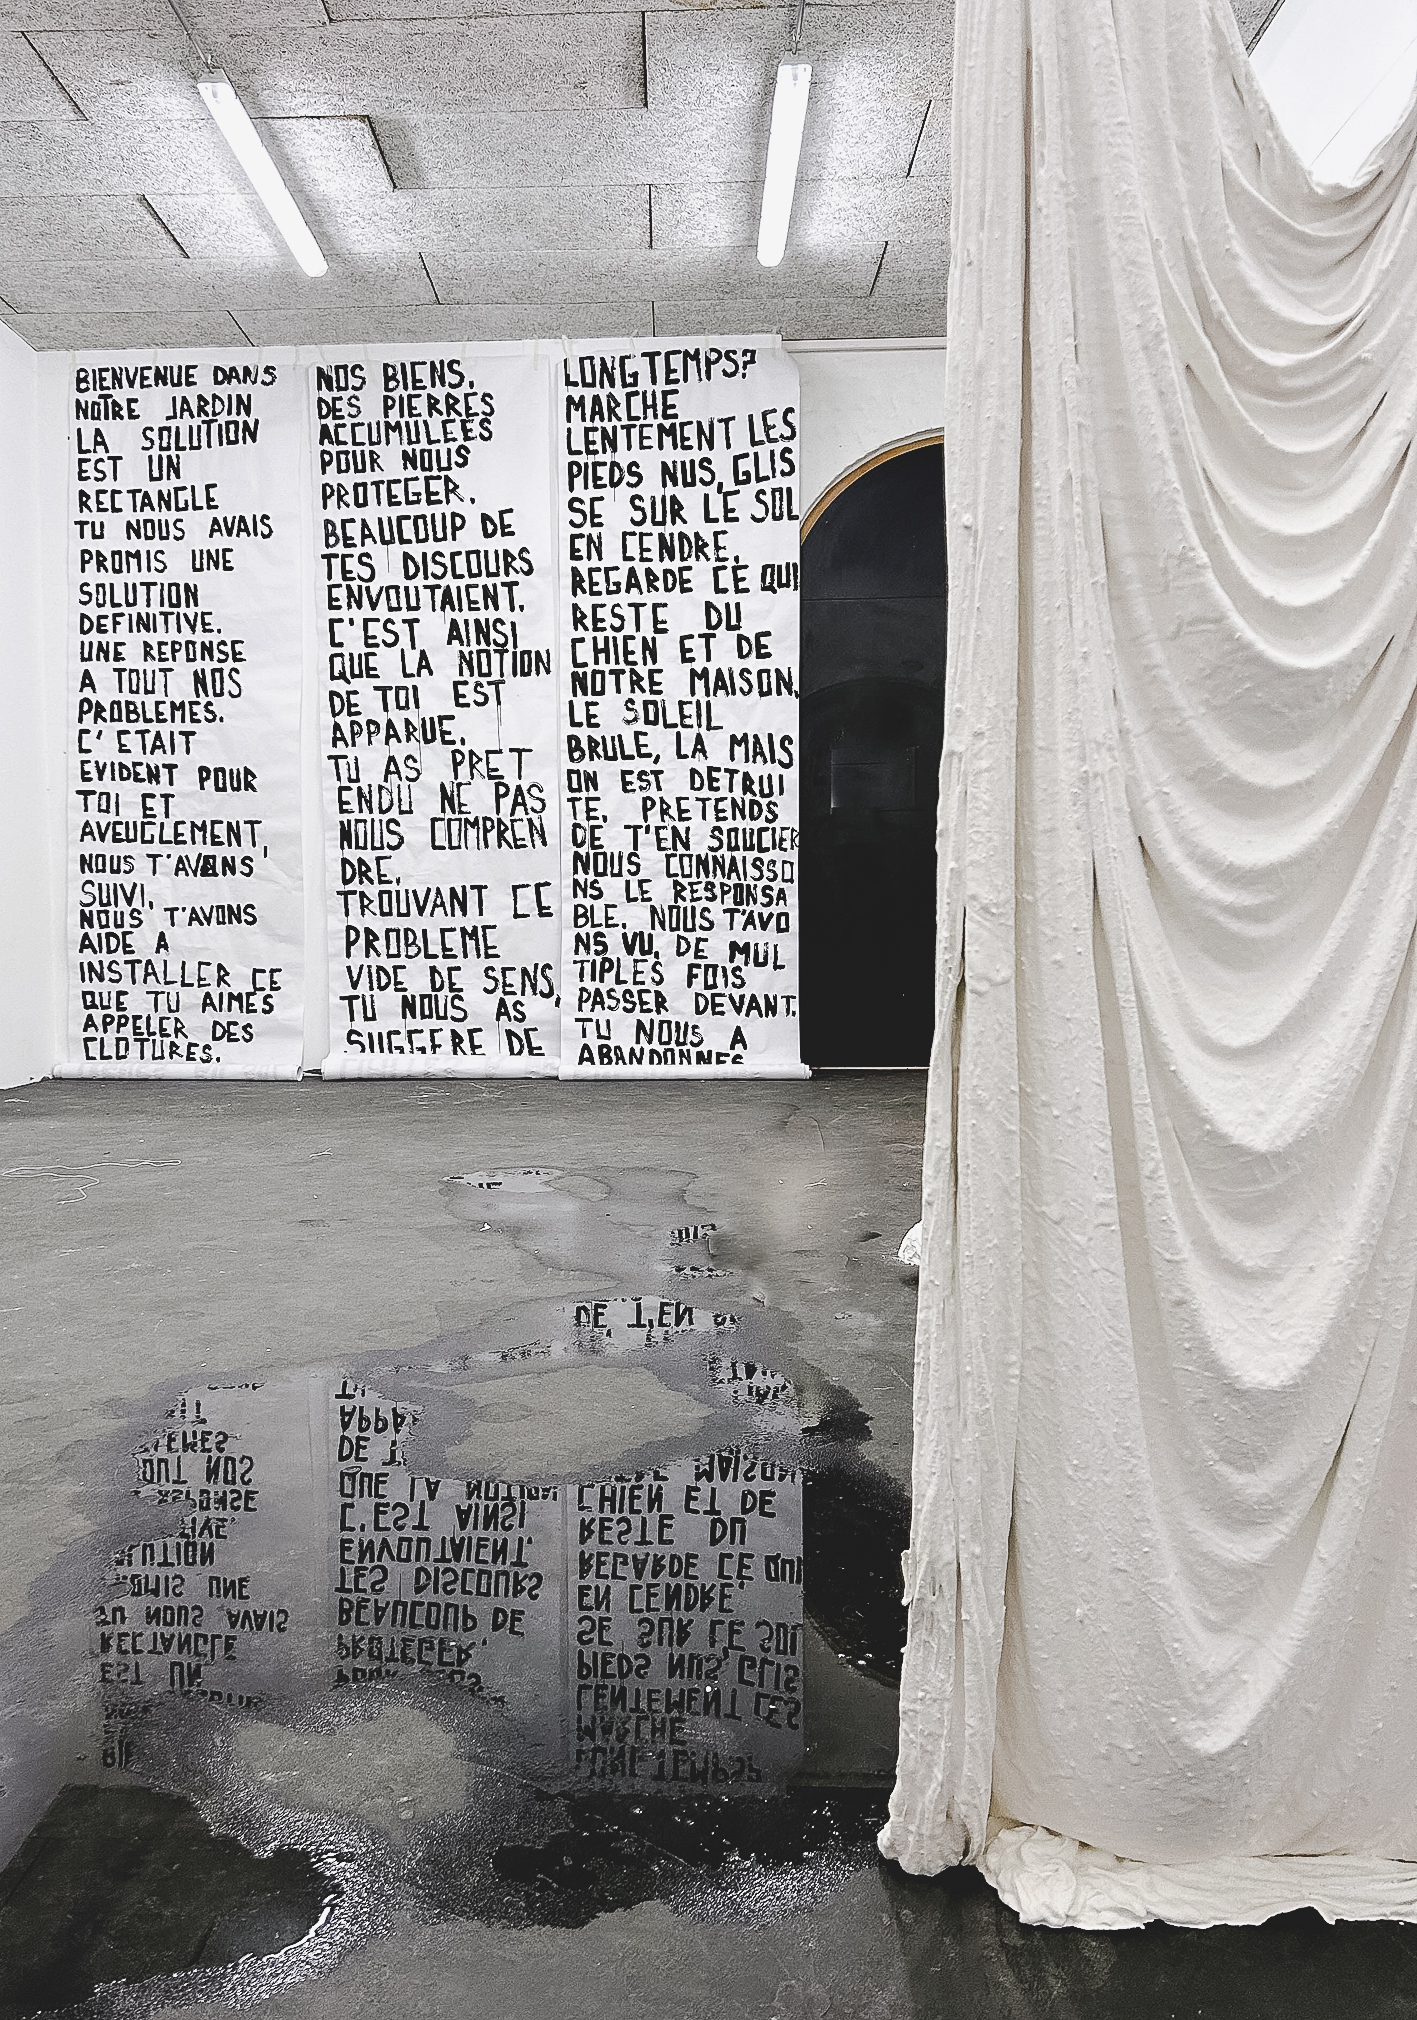 BIENVENUE DANS
NOTRE JARDIN
LA SOLUTION
EST UN
RECTANGLE
TU NOUS AVAIS
PROMIS UNE
SOLUTION
DEFINITIVE.
UNE REPONSE
A TOUT NOS
PROBLEMES.
C'ETAIT
EVIDENT POUR
TOI ET
AVEUGLEMENT,
NOUS T'AVONS
SUIVI.
NOUS T'AVONS
AIDE A
INSTALLER CE
QUE TU AIMES
APPELER DES
CLOTURES.
NOS BIENS.
DES PIERRES
ACCUMULEES
POUR NOUS
PROTEGER.
BEAUCOUP DE
TES DISCOURS
ENVOUTAIENT.
C'EST AINSI
QUE LA NOTION
DE TOI EST
APPARUE.
TU AS PRET
ENDU NE PAS
NOUS COMPREN
DRE.
TROUVANT CE
PROBLEME
VIDE DE SENS,
TU NOUS AS
SUGGERE DE
LONGTEMPS?
MARCHE
LENTEMENT LES
PIEDS NUS, GLIS
SE SUR LE SOL
EN CENDRE.
REGARDE CE QUI
RESTE DU
CHIEN ET DE
NOTRE MAISON.
LE SOLEIL
BRULE, LA MAIS
ON EST DETRUI
TE. PRETENDS
DE T'EN SOUCIER
NOUS CONNAISSO
NS LE RESPONSA
BLE. NOUS T'AVO
NS VU, DE MUL
TIPLES FOIS
PASSER DEVANT.
TU NOUS A
ABANDONNES